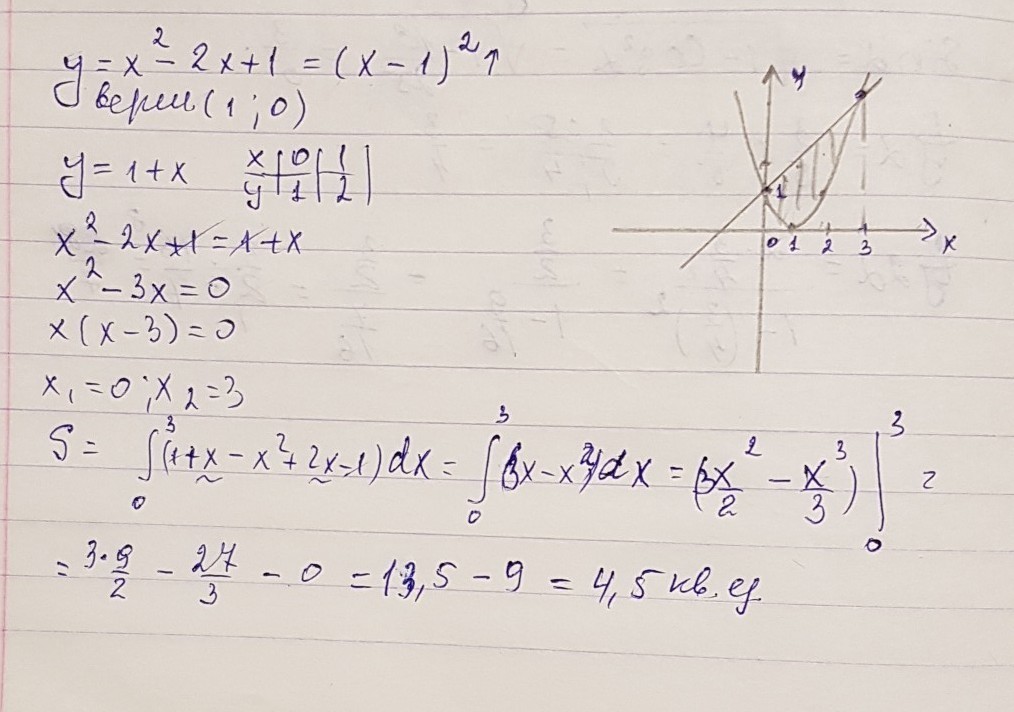 y = x² - 2x + 1 = (x - 1)² ↑
верш (1 ; 0)
y = 1 + x x | 0 | 1 |
y | 1 | 2 |
x² - 2x + 1 = 1 + x
x² - 3x = 0
x (x - 3) = 0
x₁ = 0 ; x₂ = 3
S = ∫₀³ (1 + x - x² + 2x - 1) dx = ∫₀³ (3x - x²) dx = (3x²/2 - x³/3) |₀³ =
= 3·9/2 - 27/3 - 0 = 13,5 - 9 = 4,5 кв. ед.
y
1
0 1 2 3 x